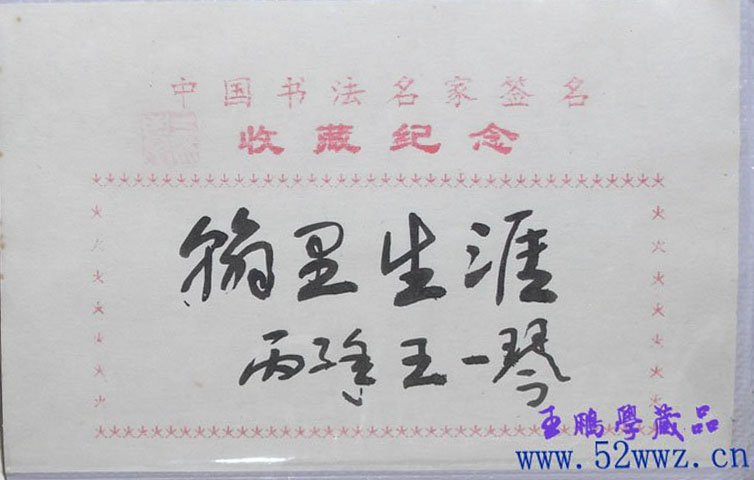 中国书法名家签名
收藏纪念
翰墨生涯
丙子 王一琴
王鵬學藏品
www.52wwz.cn